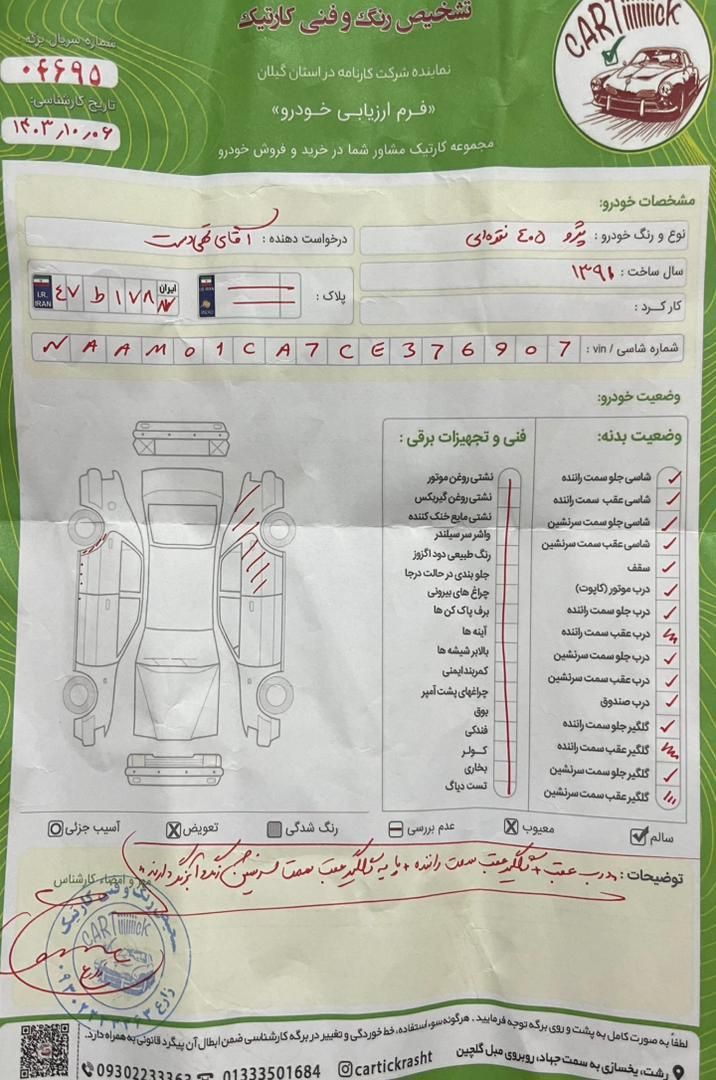 تشخیص رنگ و فنی کارتیک
CARTiiiiiick
شماره سریال برگه:
۰۴۶۹۵
نماینده شرکت کارنامه در استان گیلان
تاریخ کارشناسی:
«فرم ارزیابی خودرو»
۱۴۰۳٫۱۰٫۰۶
مجموعه کارتیک مشاور شما در خرید و فروش خودرو
مشخصات خودرو:
نوع و رنگ خودرو : پژو ۴۰۵ نقره‌ای
درخواست دهنده : آقای
سال ساخت : ۱۳۹۱
پلاک :
ایران
I.R. IRAN
۴۷ ط ۱۷۸
کارکرد :
شماره شاسی / vin : N A A M 0 1 C A 7 C E 3 7 6 9 0 7
وضعیت خودرو:
وضعیت بدنه:
شاسی جلو سمت راننده
شاسی عقب سمت راننده
شاسی جلو سمت سرنشین
شاسی عقب سمت سرنشین
سقف
درب موتور (کاپوت)
درب جلو سمت راننده
درب عقب سمت راننده
درب جلو سمت سرنشین
درب عقب سمت سرنشین
درب صندوق
گلگیر جلو سمت راننده
گلگیر عقب سمت راننده
گلگیر جلو سمت سرنشین
گلگیر عقب سمت سرنشین
فنی و تجهیزات برقی :
نشتی روغن موتور
نشتی روغن گیربکس
نشتی مایع خنک کننده
واشر سر سیلندر
رنگ طبیعی دود اگزوز
جلو بندی در حالت درجا
چراغ های بیرونی
برف پاک کن ها
آینه ها
بالابر شیشه ها
کمربند ایمنی
چراغهای پشت آمپر
بوق
فندکی
کولر
بخاری
تست دیاگ
سالم
معیوب
عدم بررسی
رنگ شدگی
تعویض
آسیب جزئی
توضیحات : درب عقب + گلگیر عقب سمت راننده + گلگیر عقب سمت سرنشین رنگ دارند
مهر و امضاء کارشناس
تشخیص رنگ و فنی کارتیک
CARTiiiiiick
زارع
لطفاً به صورت کامل به پشت و روی برگه توجه فرمایید. هرگونه سو استفاده، خط خوردگی و تغییر در برگه کارشناسی ضمن ابطال آن پیگرد قانونی به همراه دارد.
رشت، یخسازی به سمت جهاد، روبروی مبل گلچین
cartickrasht
01333501684
09302233363